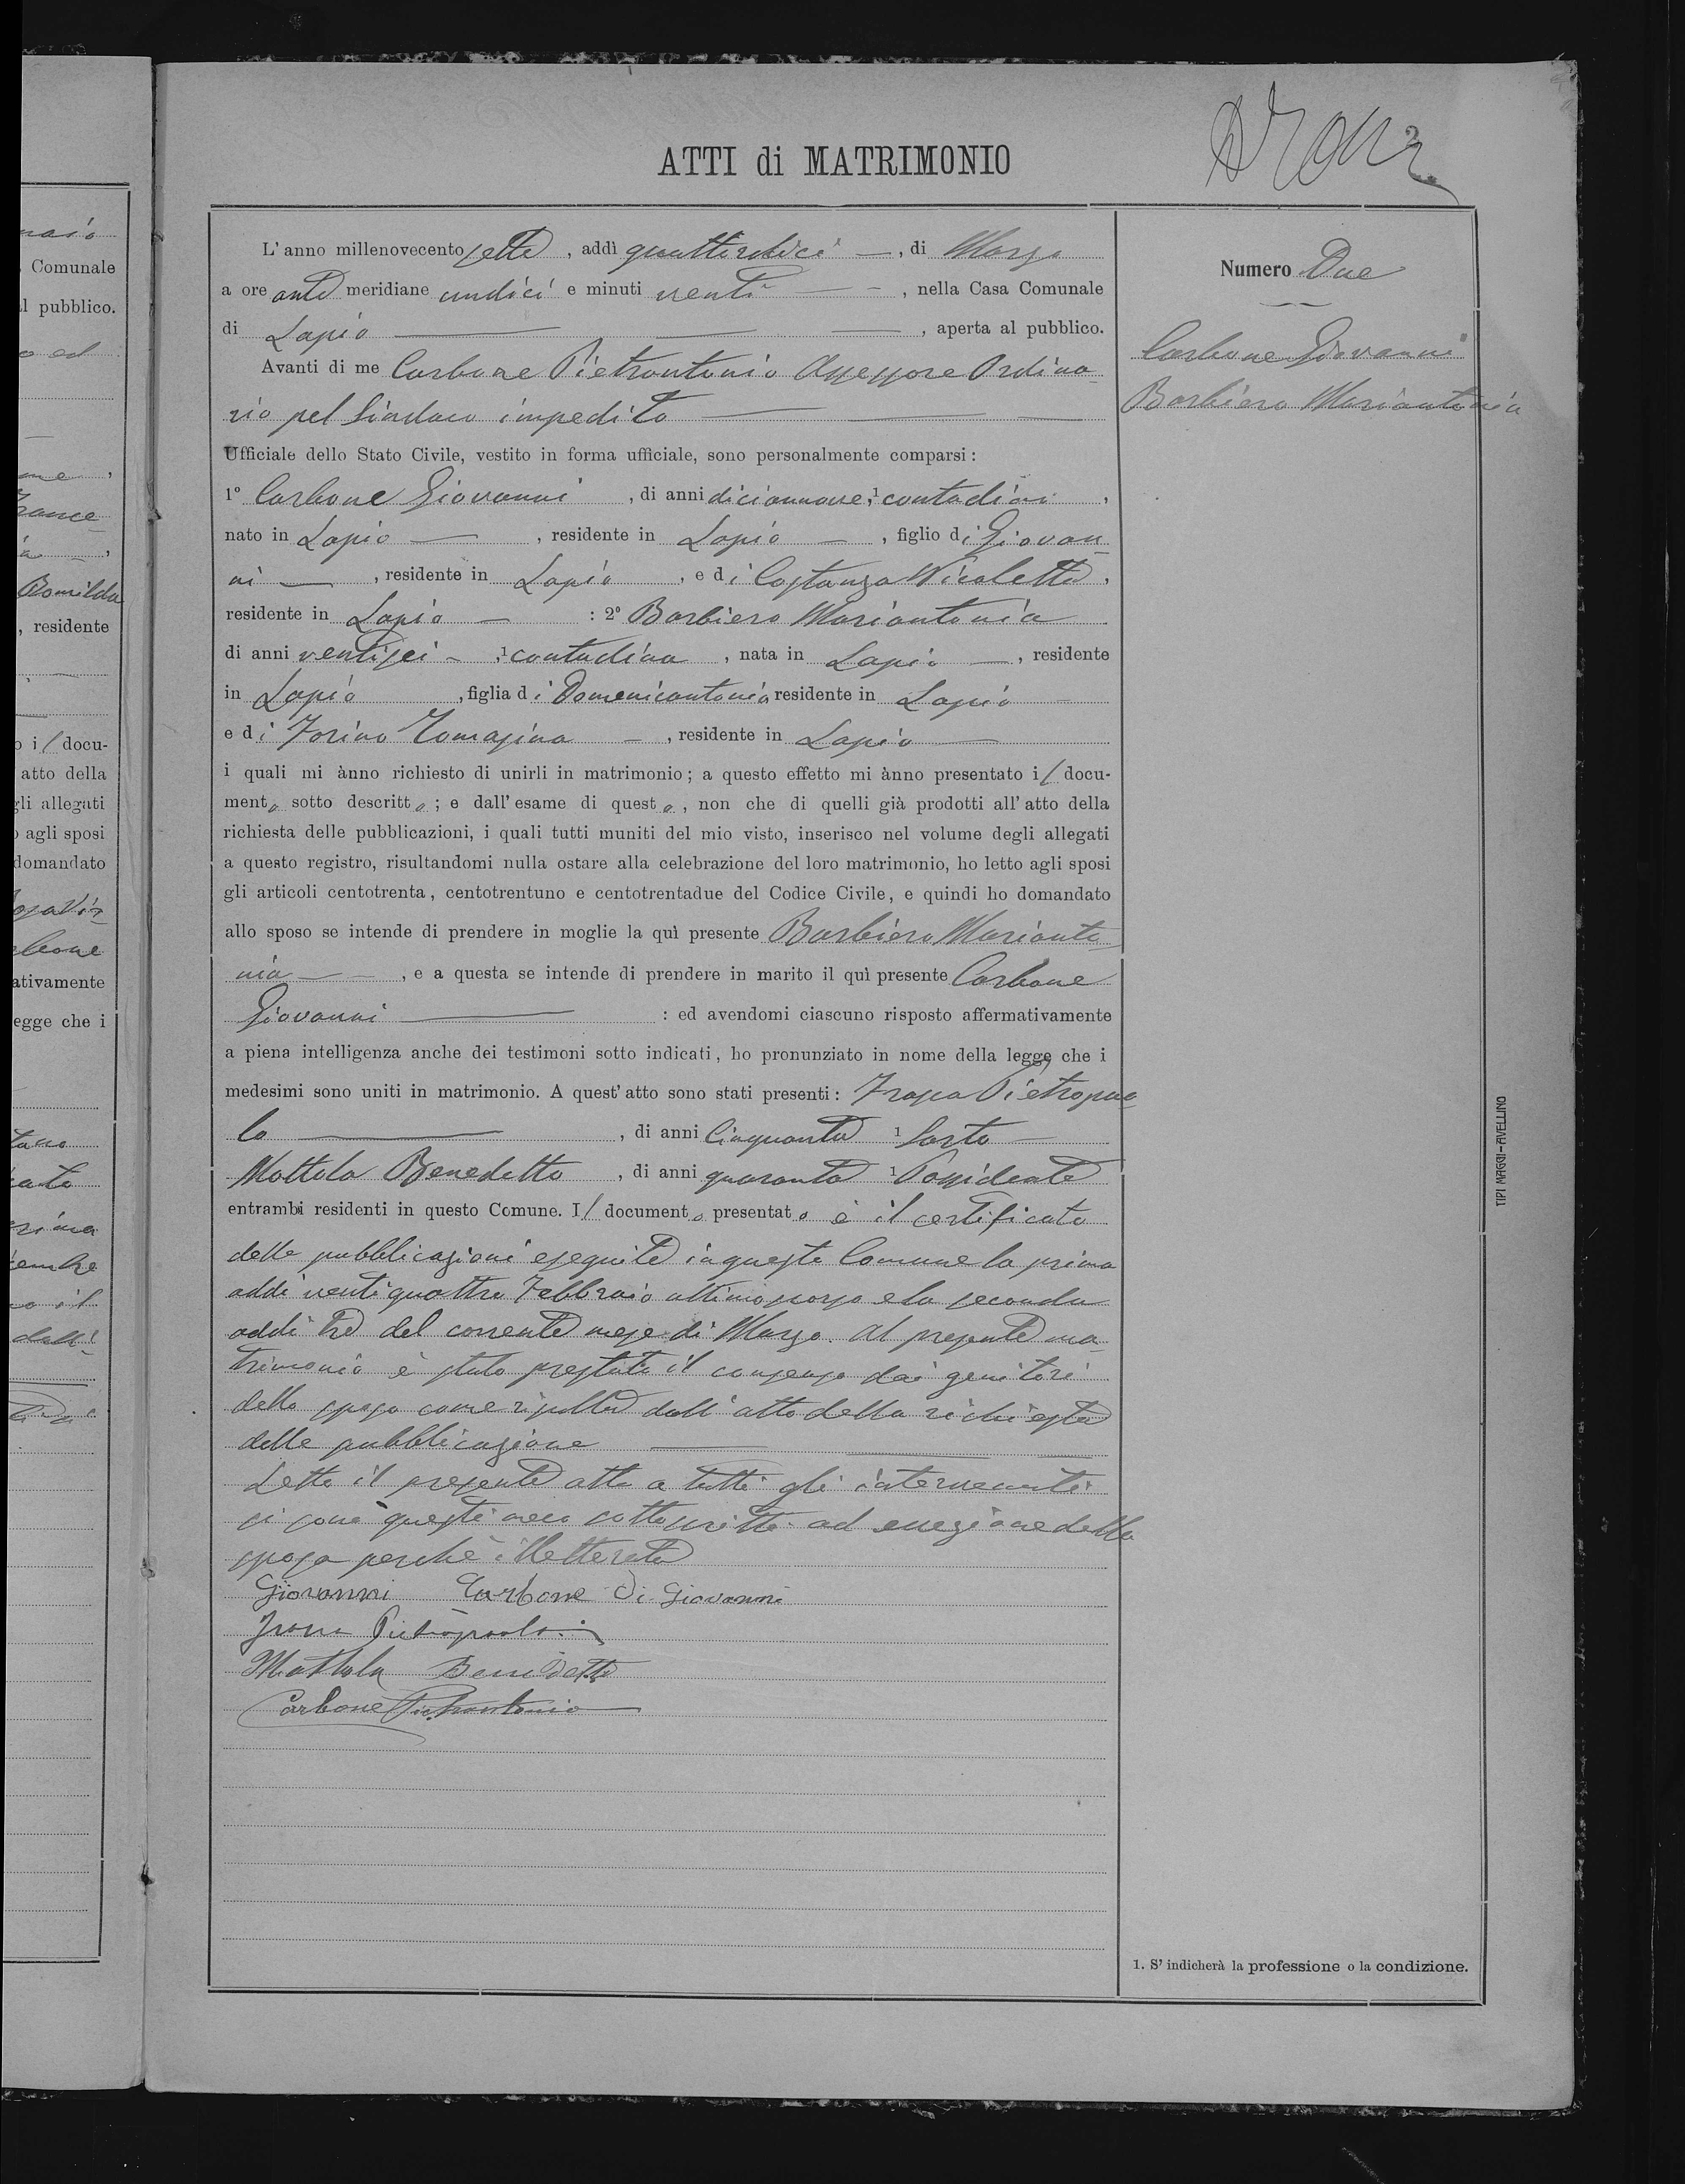 2
ATTI di MATRIMONIO
Numero Due
Carbone Giovanni
Barbiero Mariantonia
L'anno millenovecento sette, addì quattordici —, di Marzo
a ore ante meridiane undici e minuti venti — –, nella Casa Comunale
di Lapio — — —, aperta al pubblico.
Avanti di me Carbone Pietrantonio Assessore Ordina-
rio pel Sindaco impedito — — —
Ufficiale dello Stato Civile, vestito in forma ufficiale, sono personalmente comparsi:
1° Carbone Giovanni, di anni diciannove, ¹ contadino,
nato in Lapio —, residente in Lapio —, figlio di Giovan-
ni —, residente in Lapio, e di Costanza Nicoletta,
residente in Lapio — : 2° Barbiero Mariantonia
di anni ventisei –, ¹ contadina, nata in Lapio —, residente
in Lapio, figlia di Domenicantonio residente in Lapio —
e di Forino Tomasina —, residente in Lapio —
i quali mi ànno richiesto di unirli in matrimonio; a questo effetto mi ànno presentato il docu-
mento sotto descritto; e dall'esame di questo, non che di quelli già prodotti all'atto della
richiesta delle pubblicazioni, i quali tutti muniti del mio visto, inserisco nel volume degli allegati
a questo registro, risultandomi nulla ostare alla celebrazione del loro matrimonio, ho letto agli sposi
gli articoli centotrenta, centotrentuno e centotrentadue del Codice Civile, e quindi ho domandato
allo sposo se intende di prendere in moglie la quì presente Barbiero Marianto-
nia — —, e a questa se intende di prendere in marito il quì presente Carbone
Giovanni — : ed avendomi ciascuno risposto affermativamente
a piena intelligenza anche dei testimoni sotto indicati, ho pronunziato in nome della legge che i
medesimi sono uniti in matrimonio. A quest'atto sono stati presenti: Pietropao-
lo —, di anni cinquanta ¹ Sarto —
Mottola Benedetto, di anni quaranta ¹ Possidente
entrambi residenti in questo Comune. Il documento presentato è il certificato
delle pubblicazioni eseguite in questo Comune la prima
addì ventiquattro Febbraio ultimo scorso e la seconda
addì tre del corrente mese di Marzo. Al presente ma-
trimonio è stato prestato il consenso dai genitori
dello sposo come risulta dall'atto della richiesta
delle pubblicazione — — —
Letto il presente atto a tutti gli intervenuti
si sono questi meco sottoscritti ad eccezione della
sposa perchè illetterata
Giovanni Carbone di Giovanni
Pietropaolo
Mottola Benedetto
Carbone Pietrantonio
1. S'indicherà la professione o la condizione.
TIPI MAGGI-AVELLINO
naio
Comunale
l pubblico.
o ed
Romilda
, residente
o il docu-
atto della
gli allegati
o agli sposi
domandato
ativamente
egge che i